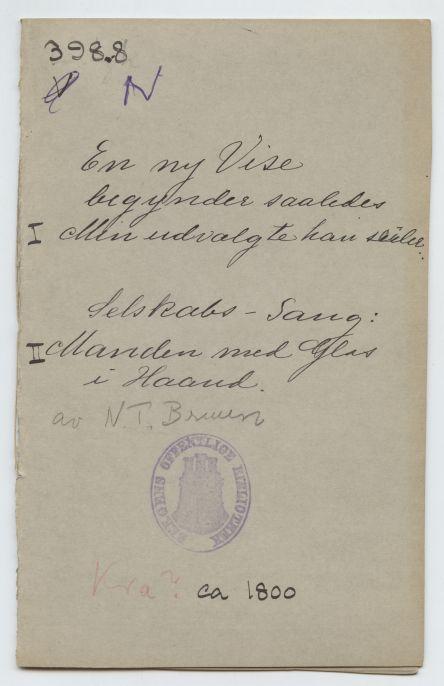 398.8
N
En ny Vise
begynder saaledes
I Min udvalgte han
Selskabs-Sang:
II Manden med Glas
i Haand.
av N. T. Bruun
BERGENS OFFENTLIGE BIBLIOTHEK
Kra? ca 1800